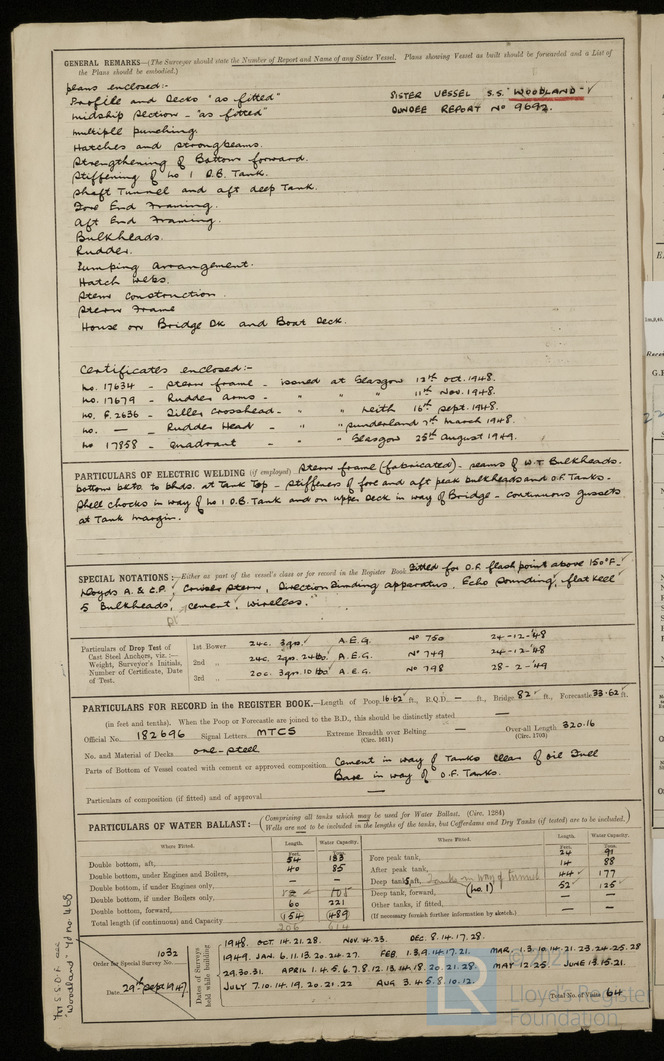 GENERAL REMARKS—(The Surveyor should state the Number of Report and Name of any Sister Vessel. Plans showing Vessel as built should be forwarded and a List of
the Plans should be embodied.)
plans enclosed:-
Profile and Decks "as fitted"
SISTER VESSEL S.S. "WOODLAND"
midship section - "as fitted"
DUNDEE REPORT No 9692.
multiple punching.
Hatches and strongbeams.
Strengthening of Bottom forward.
Stiffening of no 1 D.B. Tank.
Shaft Tunnel and aft deep Tank.
Fore End Framing.
Aft End Framing.
Bulkheads.
Rudder.
Pumping arrangement.
Hatch webs.
Stem Construction.
Stern Frame
House on Bridge Dk and Boat Deck.
Certificates enclosed:-
no. 17634 - Stern frame - issued at Glasgow 12th Oct. 1948.
no. 17679 - Rudder Arms - " " " 11th Nov. 1948.
no. F.2636 - Tiller Crosshead - " " Leith 16th Sept. 1948.
no. — - Rudder Head - " " Sunderland 7th March 1948.
no 17858 - Quadrant - " " Glasgow 25th August 1949.
PARTICULARS OF ELECTRIC WELDING (if employed) Stern frame (fabricated) - seams of W.T Bulkheads.
bottom bkts to bhds. at Tank Top - stiffeners of fore and aft peak bulkheads and O.F. Tanks -
Shell chocks in way of no 1 D.B. Tank and on upper Deck in way of Bridge - continuous gussets
at Tank margin.
SPECIAL NOTATIONS:—Either as part of the vessel's class or for record in the Register Book Fitted for O.F. flash point above 150°F.
Lloyds A. & C.P. Cruiser Stern, Direction Finding apparatus, Echo Sounding, flat keel
5 Bulkheads, cement, wireless.
Particulars of Drop Test of
Cast Steel Anchors, viz.:—
Weight, Surveyor's Initials,
Number of Certificate, Date
of Test.
1st Bower 24c. 3qrs. A.E.G. No 750 24-12-'48
2nd " 24c. 2qrs. 24lbs. A.E.G. No 749 24-12-'48
3rd " 20c. 3qrs. 10lbs A.E.G. No 798 28-2-'49
PARTICULARS FOR RECORD in the REGISTER BOOK.—Length of Poop 16.62 ft., R.Q.D. — ft., Bridge 82 ft., Forecastle 33.62 ft.
(in feet and tenths). When the Poop or Forecastle are joined to the B.D., this should be distinctly stated —
Official No. 182696 Signal Letters MTCS Extreme Breadth over Belting — Over-all Length 320.16
(Circ. 1611) (Circ. 1703)
No. and Material of Decks one - steel
Parts of Bottom of Vessel coated with cement or approved composition Cement in way of Tanks clear of oil Fuel
Bare in way of O.F. Tanks.
Particulars of composition (if fitted) and of approval —
PARTICULARS OF WATER BALLAST:— (Comprising all tanks which may be used for Water Ballast. (Circ. 1284)
Wells are not to be included in the lengths of the tanks, but Cofferdams and Dry Tanks (if tested) are to be included.)
Where Fitted. Length. Water Capacity. Where Fitted. Length. Water Capacity.
Feet. Tons. Feet. Tons.
Double bottom, aft, 54 183 Fore peak tank, 24 91
Double bottom, under Engines and Boilers, 40 85 After peak tank, 14 88
Double bottom, if under Engines only, — — Deep tank, aft, Tanks in way of tunnel 44 177
Double bottom, if under Boilers only, Deep tank, forward, (No. 1) 52 125
Double bottom, forward, 60 221 Other tanks, if fitted, — —
Total length (if continuous) and Capacity 154 489 (If necessary furnish further information by sketch.)
206 614
Order for Special Survey No. 1032
Date 29th Sept 1947
Dates of Surveys
held while building
1948. OCT 14. 21. 28. NOV. 4. 23. DEC. 8. 14. 17. 28.
1949. JAN. 6. 11. 13. 20. 24. 27. FEB. 1. 3. 9. 14. 17. 21. MAR. 1. 3. 10. 14. 21. 23. 24. 25. 28
29. 30. 31. APRIL 1. 4. 5. 6. 7. 8. 12. 13. 14. 18. 20. 21. 28. MAY 12. 25. JUNE 13. 15. 21.
JULY 7. 10. 14. 19. 20. 21. 22 AUG 3. 4. 5. 8. 10. 12.
Total No. of Visits 64
"Woodland" Yd No. 468
Lloyd's Register
Foundation